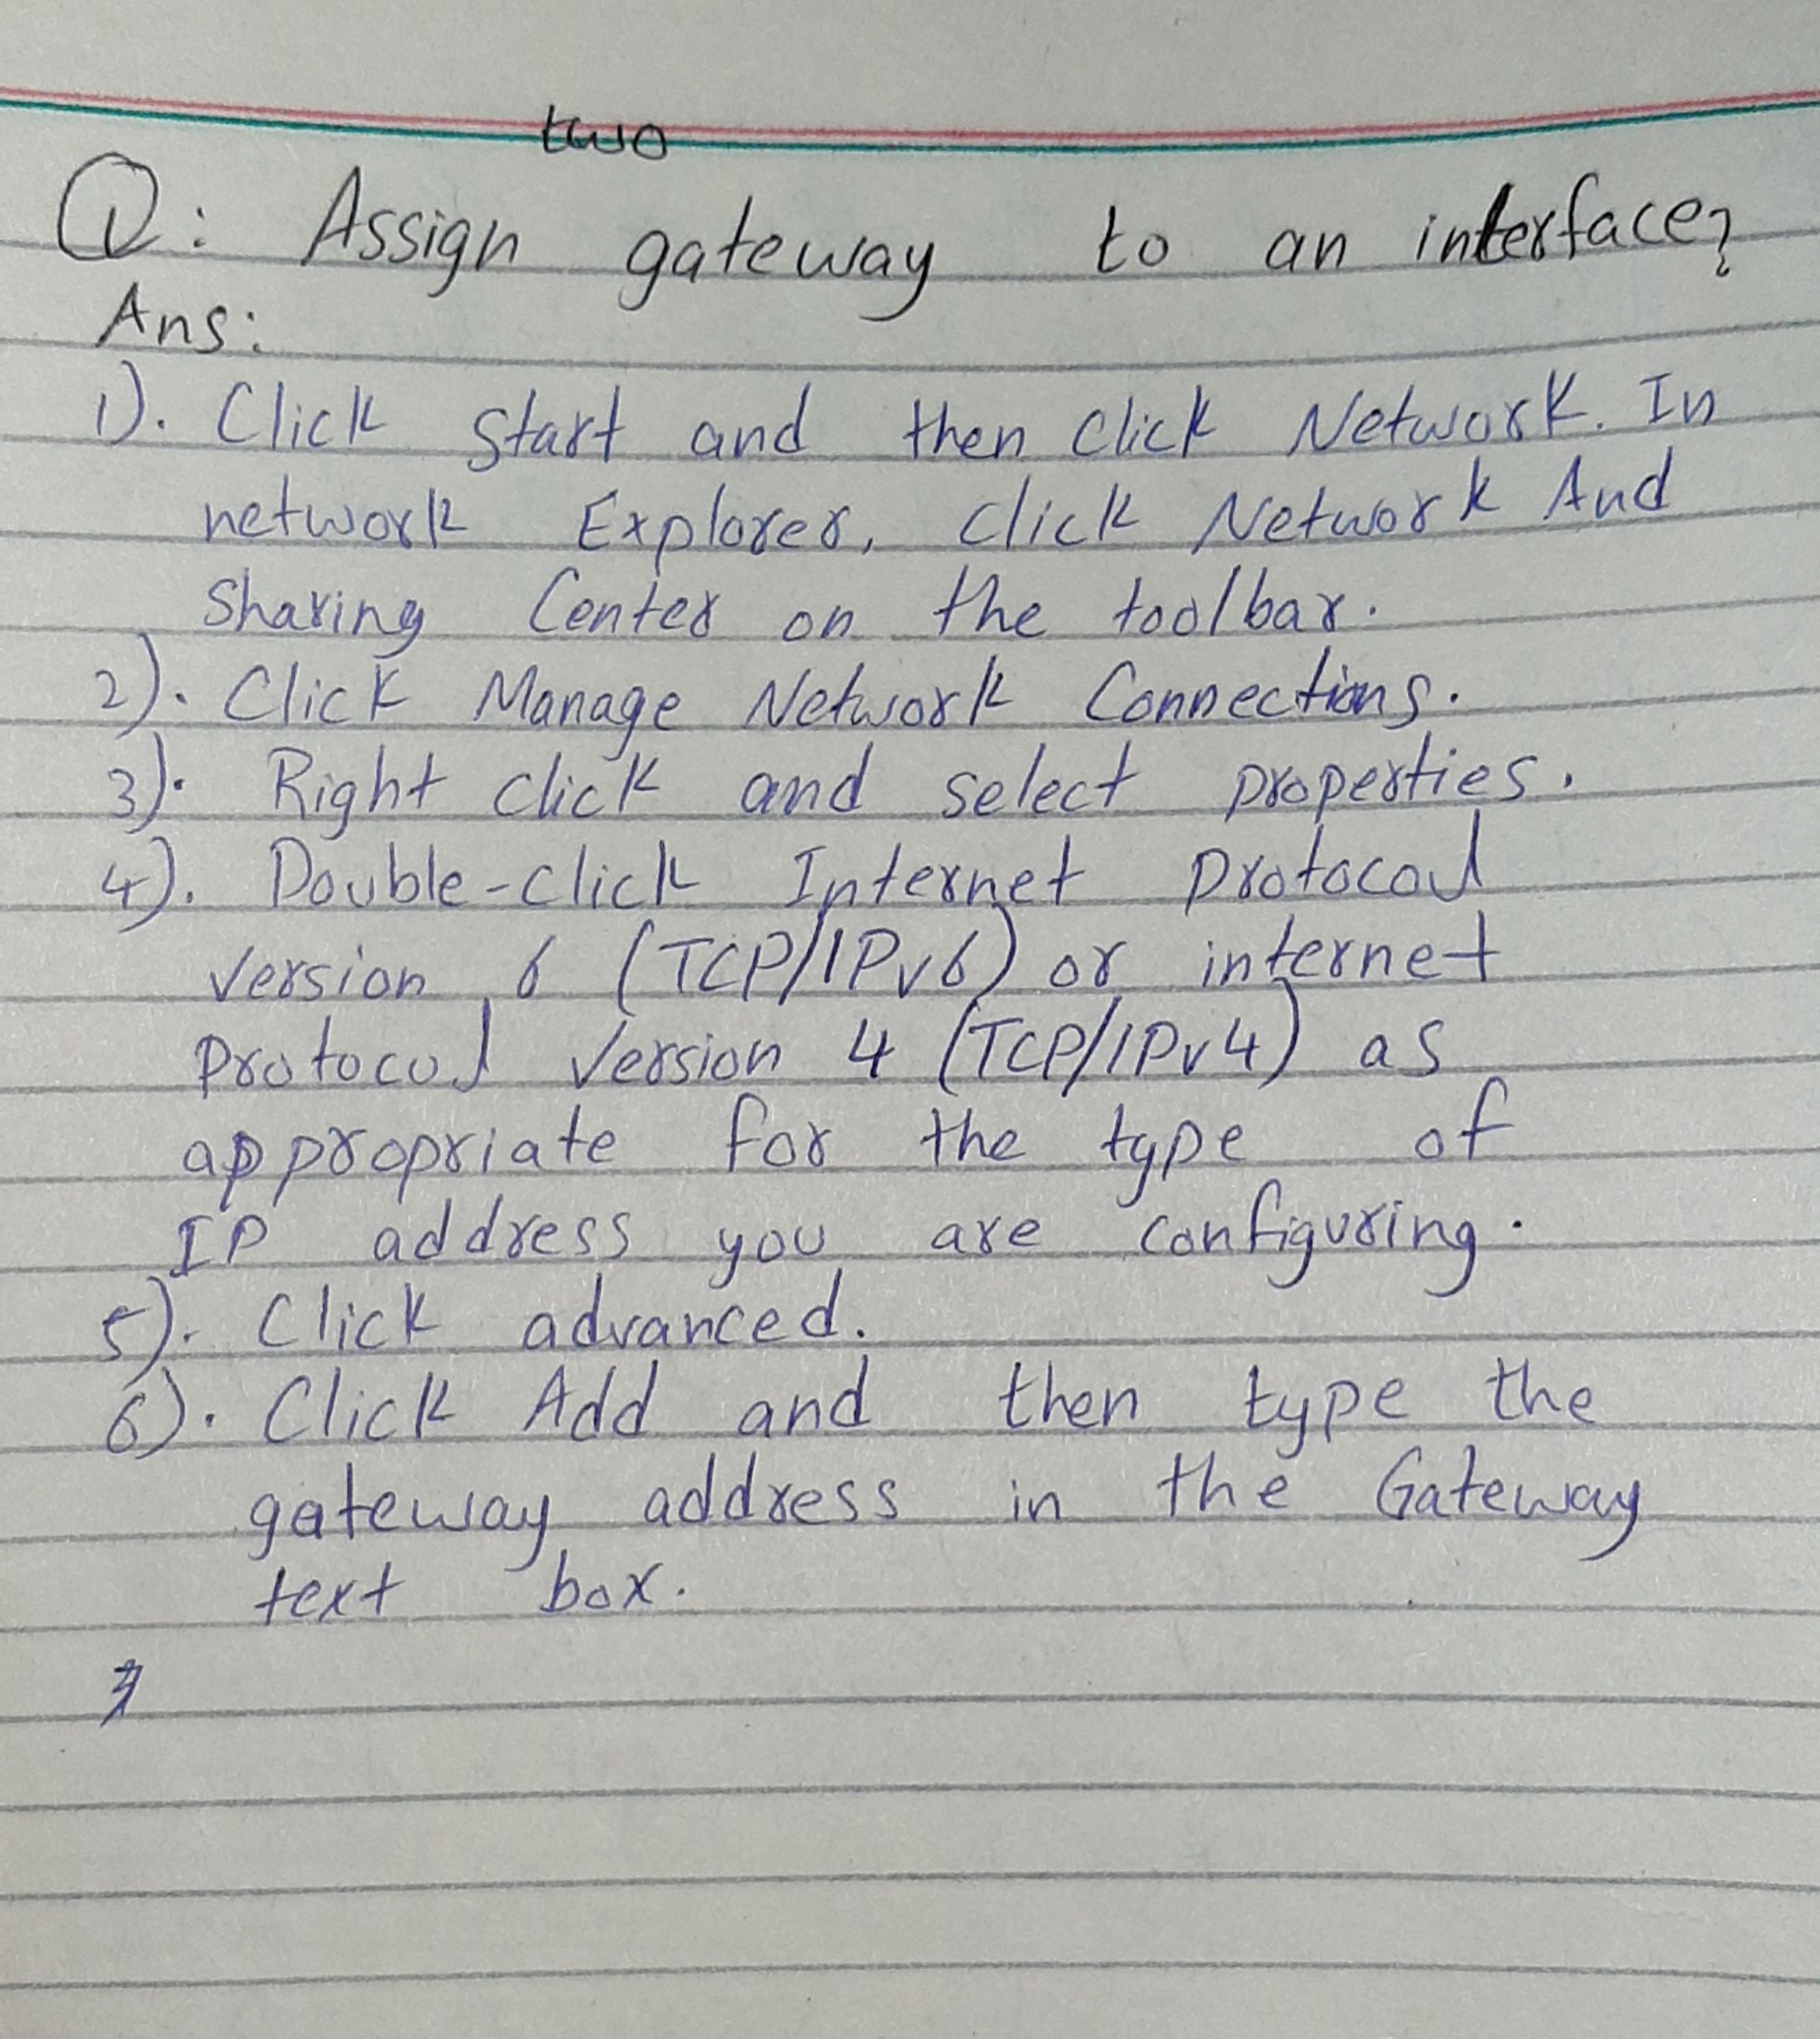 two
Q: Assign gateway to an interface?
Ans:
1). Click Start and then click Network. In
network Explorer, click Network And
Sharing Center on the toolbar.
2). Click Manage Network Connections.
3). Right click and select properties.
4). Double-click Internet Protocoul
Version 6 (TCP/IPv6) or internet
Protocol Version 4 (TCP/IPv4) as
appropriate for the type of
IP address you are configuring.
5). Click advanced.
6). Click Add and then type the
gateway address in the Gateway
text box.